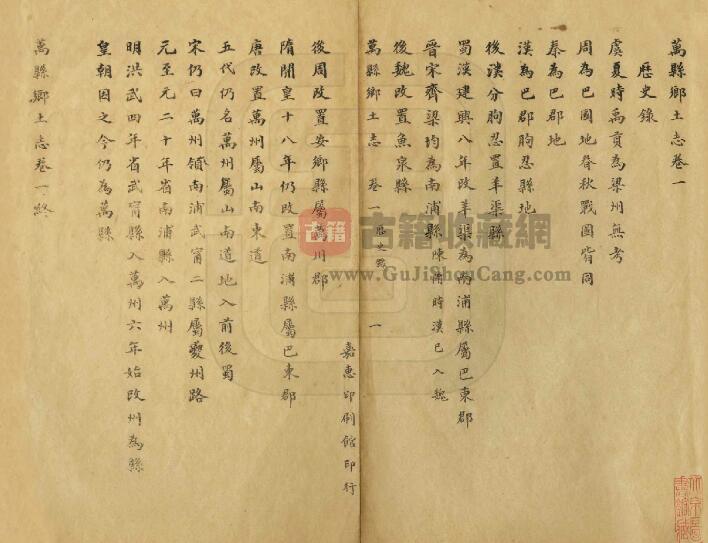 萬縣鄉土志卷一
歷史錄
虞夏時禹貢為梁州無考
周為巴國地春秋戰國皆同
秦為巴郡地
漢為巴郡朐忍縣地
後漢分朐忍置羊渠縣
蜀漢建興八年改羊渠為南浦縣屬巴東郡
晉宋齊梁均為南浦縣陳時漢巳入魏
後魏改置魚泉縣
萬縣鄉土志 卷一 歷史錄 一
嘉惠印刷館印行
後周改置安鄉縣屬萬川郡
隋開皇十八年仍改置南浦縣屬巴東郡
唐改置萬州屬山南東道
五代仍名萬州屬山南道地入前後蜀
宋仍曰萬州領南浦武甯二縣屬夔州路
元至元二十年省南浦縣入萬州
明洪武四年省武甯縣入萬州六年始改州為縣
皇朝因之今仍為萬縣
萬縣鄉土志卷一終
古籍 古籍收藏網
www.GuJiShouCang.com